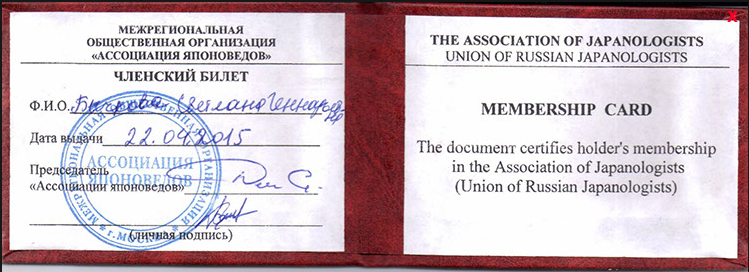 МЕЖРЕГИОНАЛЬНАЯ
ОБЩЕСТВЕННАЯ ОРГАНИЗАЦИЯ
«АССОЦИАЦИЯ ЯПОНОВЕДОВ»
ЧЛЕНСКИЙ БИЛЕТ
Ф.И.О. Светлана
Дата выдачи 22.09.2015
Председатель
«Ассоциации японоведов»
(личная подпись)
АССОЦИАЦИЯ
ЯПОНОВЕДОВ
г. МОСКВА
THE ASSOCIATION OF JAPANOLOGISTS
UNION OF RUSSIAN JAPANOLOGISTS
MEMBERSHIP CARD
The document certifies holder's membership
in the Association of Japanologists
(Union of Russian Japanologists)